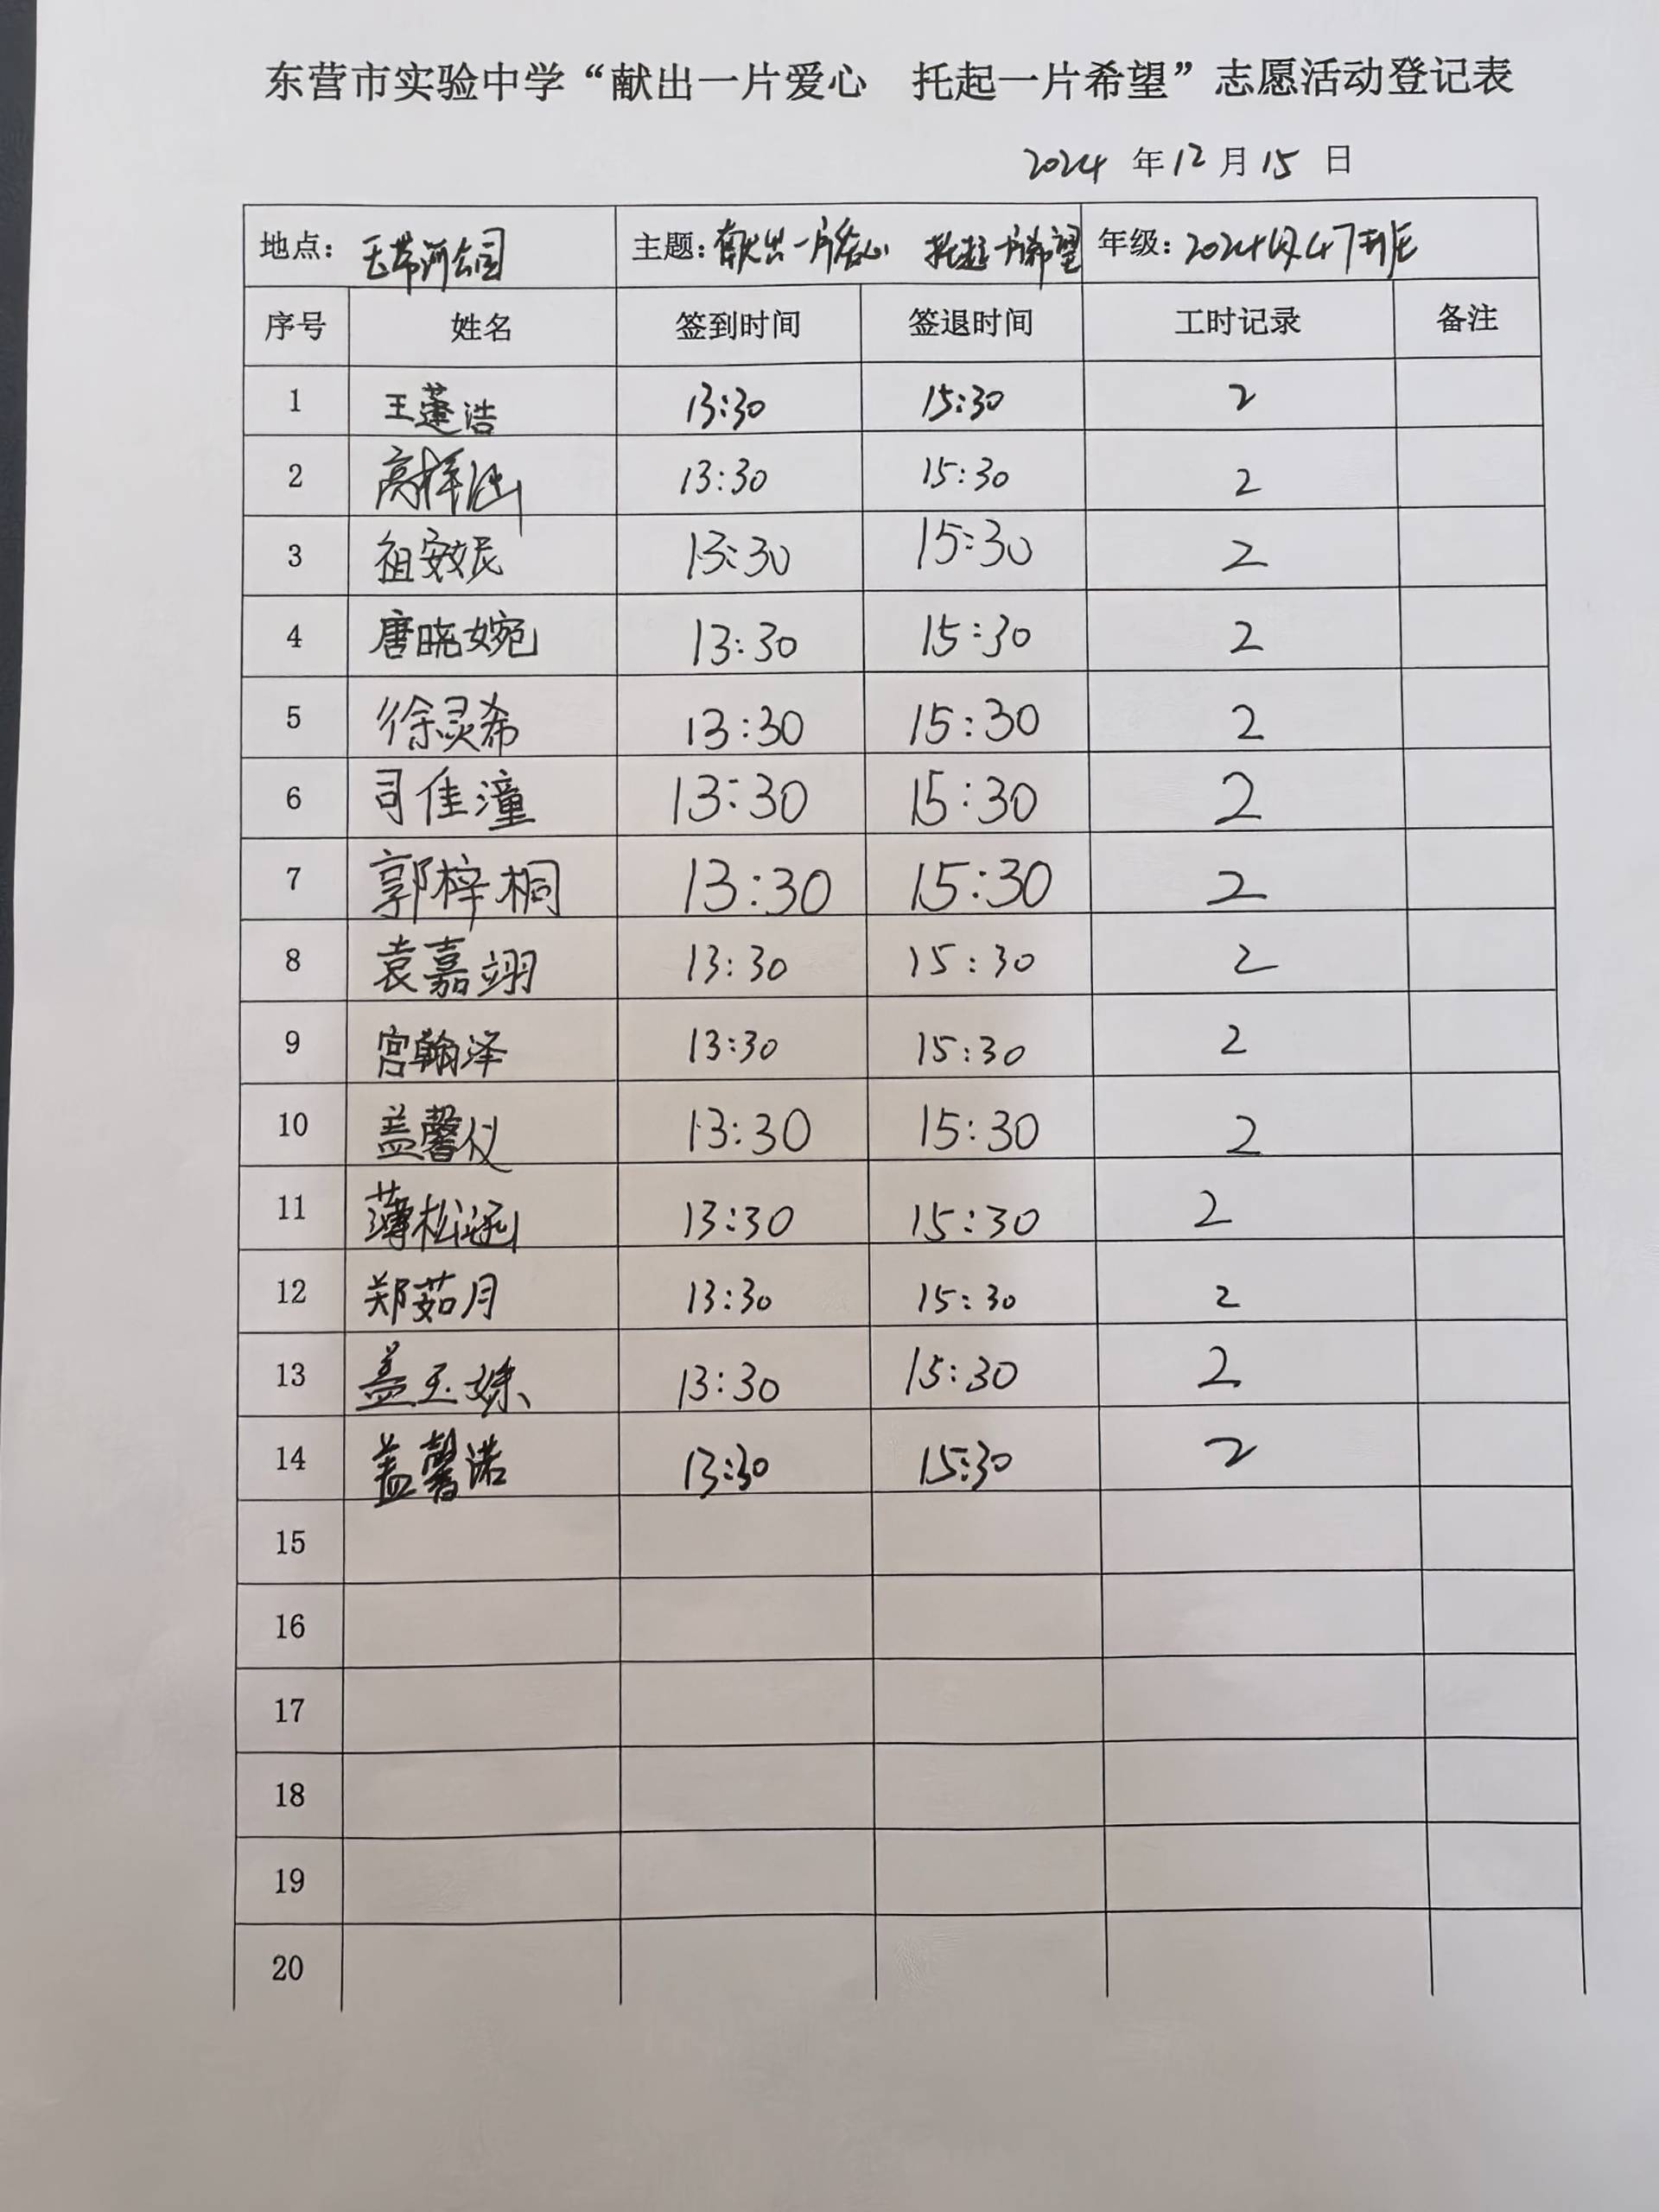 东营市实验中学“献出一片爱心 托起一片希望”志愿活动登记表
2024 年 12 月 15 日
地点：玉带河公园 主题：献出一片爱心 托起一片希望 年级：2024级47班
序号 姓名 签到时间 签退时间 工时记录 备注
1 王蓬浩 13:30 15:30 2
2 高梓涵 13:30 15:30 2
3 祖安妮 13:30 15:30 2
4 唐晓婉 13:30 15:30 2
5 徐灵希 13:30 15:30 2
6 司佳潼 13:30 15:30 2
7 郭梓桐 13:30 15:30 2
8 袁嘉翊 13:30 15:30 2
9 宫翰泽 13:30 15:30 2
10 盖馨仪 13:30 15:30 2
11 薄松涵 13:30 15:30 2
12 郑茹月 13:30 15:30 2
13 盖玉姝 13:30 15:30 2
14 盖馨诺 13:30 15:30 2
15
16
17
18
19
20